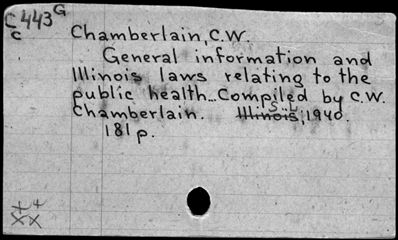 C443G
c
Chamberlain, C.W.
General information and
Illinois laws relating to the
public health...Compiled by C.W.
Chamberlain. Illinois, 1940.
181p.